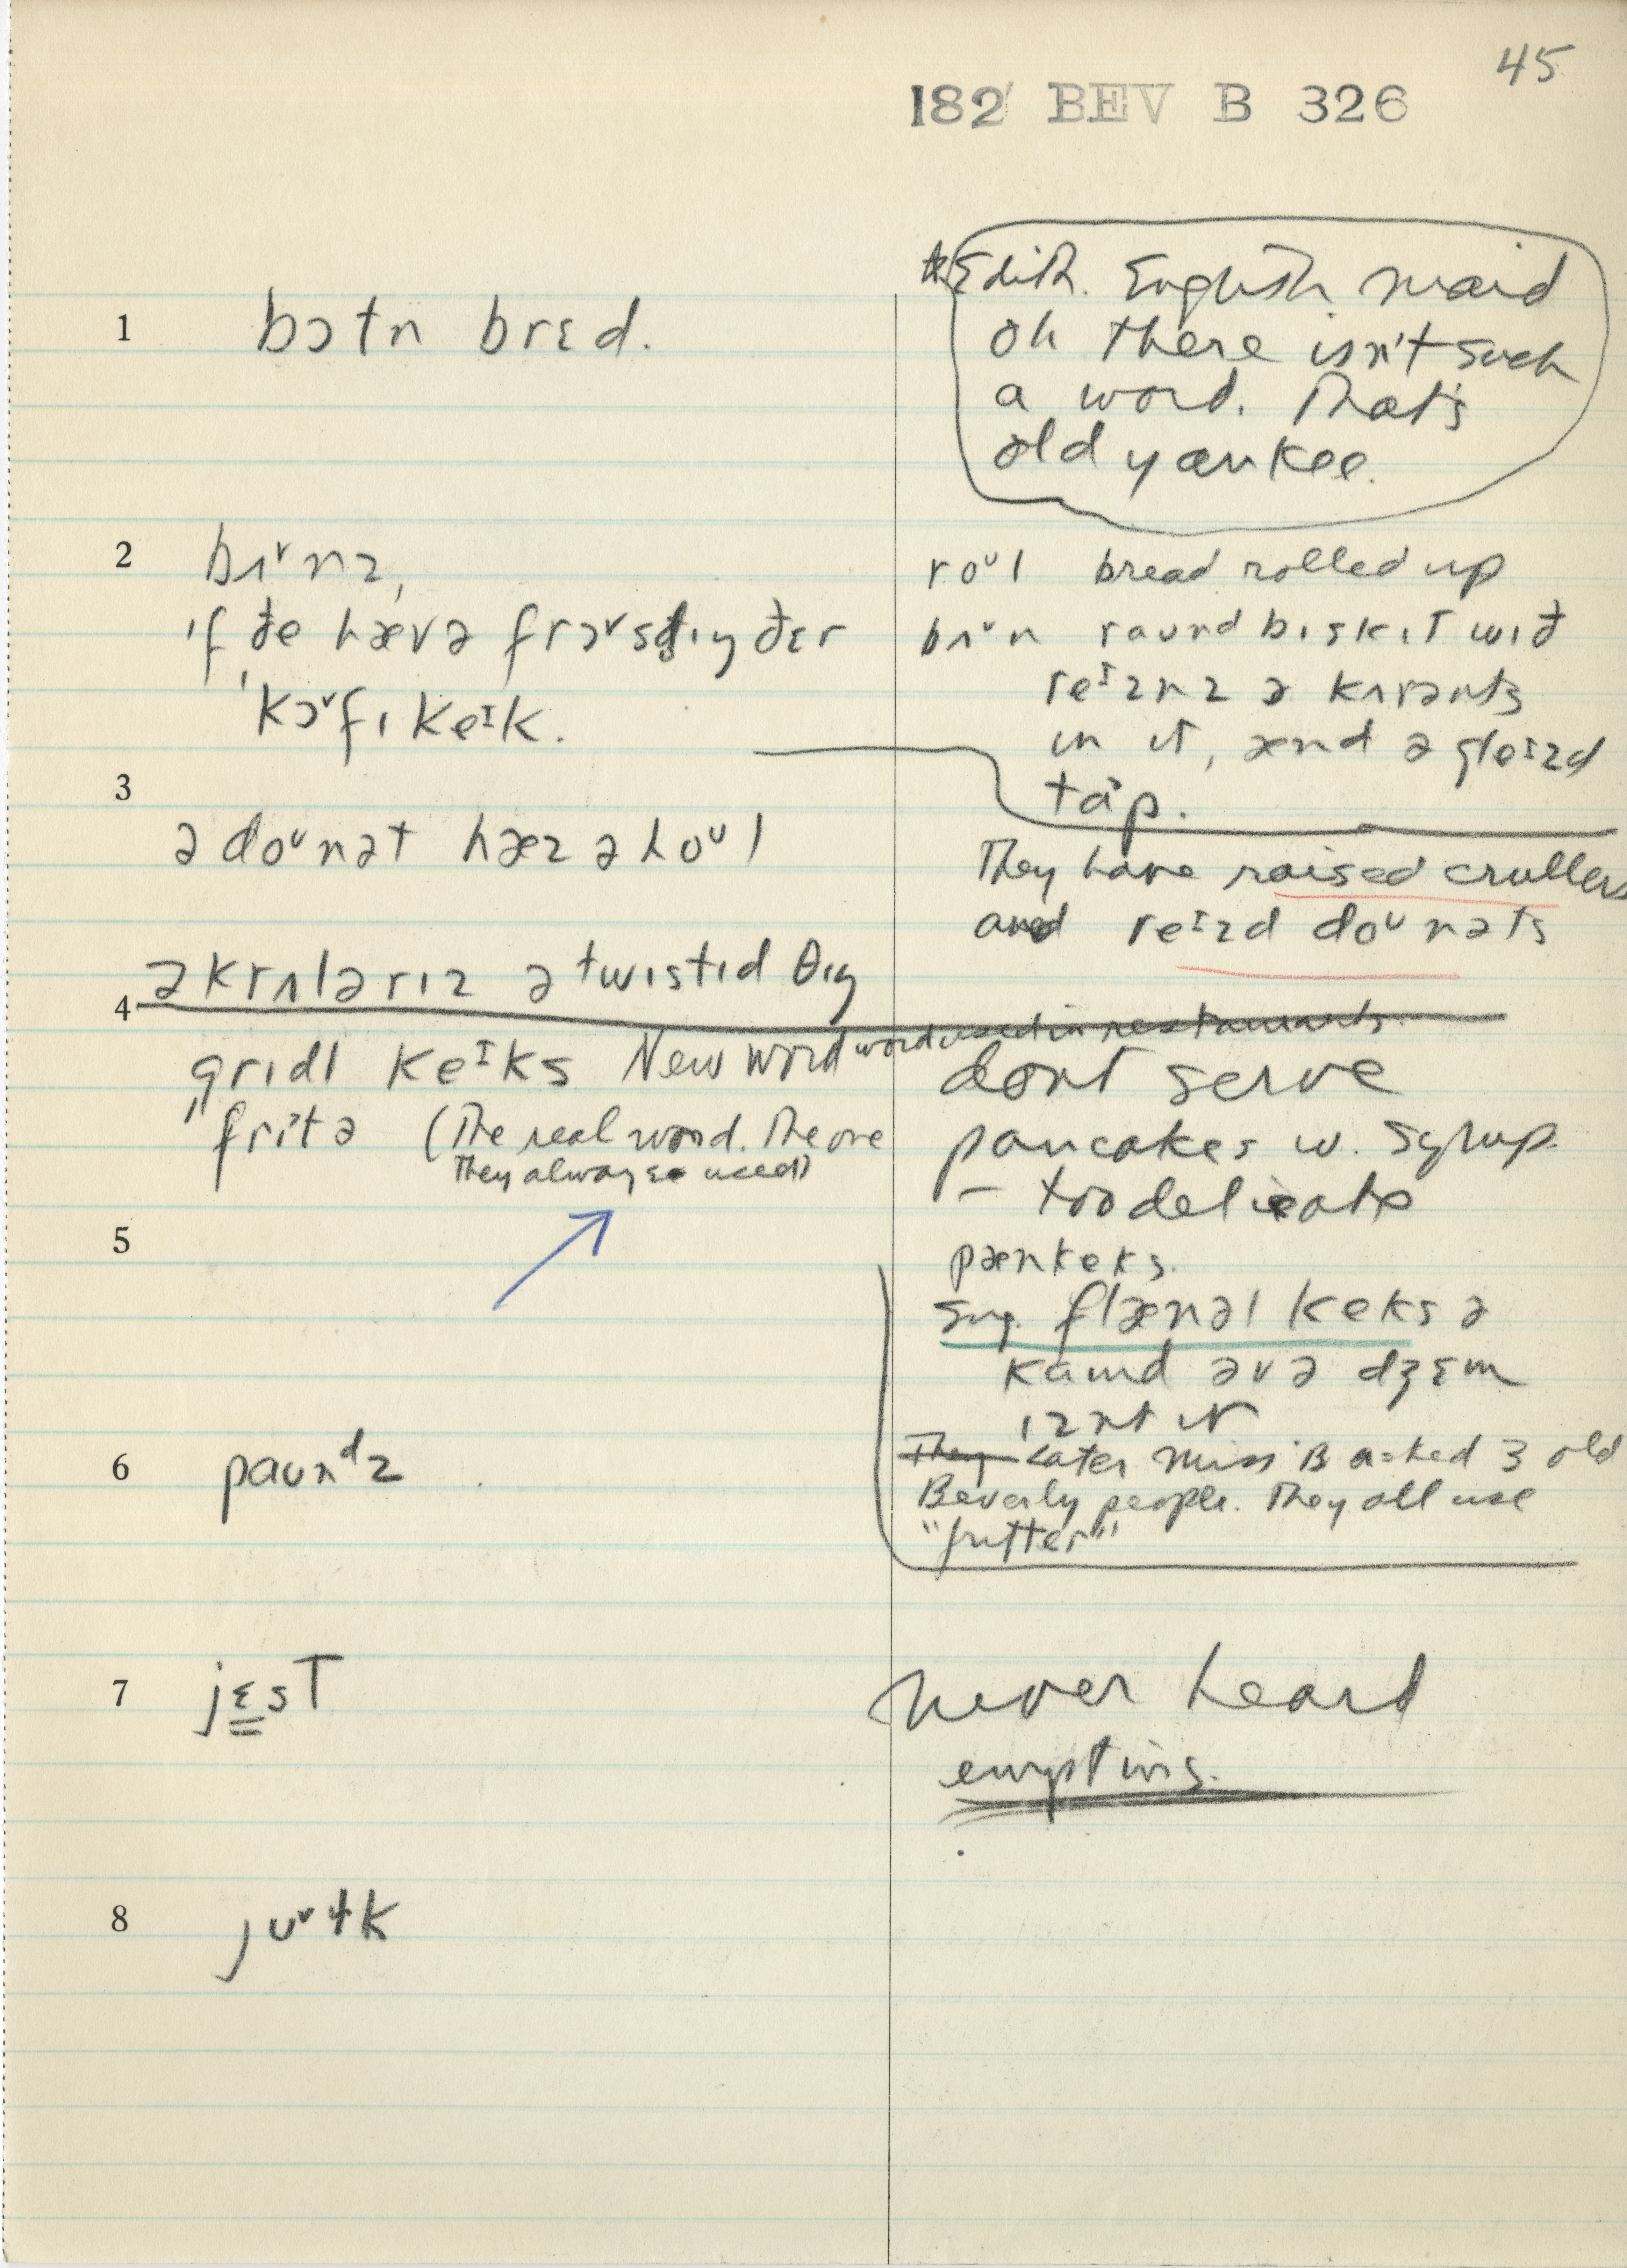 45
182 BEV B 326
*Edith. English maid
oh there isn't such
a word. That's
old yankee.
1 bɔtn brɛd.
2 bʌ˅nz,
ɪf ðe hævə frɔ˅stɪŋ ðɛr
kɔ˅fɪ keᴵk.
roᵁl bread rolled up
bʌ˅n raund bɪskɪt wɪð
reᴵznz ə kʌrənts
ɪn ɪt, ænd ə gleɪzd
tap.
3
ə doᵁnət hæz ə hoᵁl
They have raised crullers
and reᴵzd doᵁnəts
ə krʌlər ɪz ə twɪstɪd θɪŋ
4
grɪdl keᴵks New word word used in restaurants
"frɪtə (The real word. The one
they always used)
dont serve
pancakes w. syrup.
– too delicate
5
pænkeks.
Eng. flænəl keks ə
kaɪnd əvə dʒɛm
ɪznt ɪt
They Later Miss B asked 3 old
Beverly people. They all use
"fritter"
6 paunᵈz
7 jɛst
Never heard
emptins.
8 jo˅lk